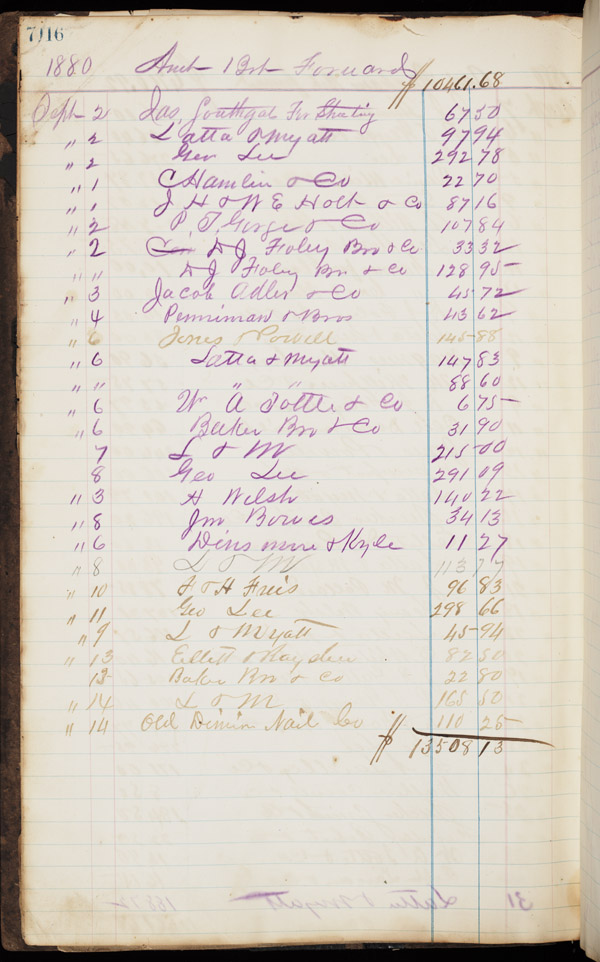 7116
1880 Amt Brt Forward $10461.68
Sept 2 Jas, Southgate For Sheeting 67 50
" 2 Latta & Myatt 97 94
" 2 Geo Lee 292 78
" 1 C Hamlin & Co 22 70
" 1 J H & W E Holt & Co 87 16
" 2 P. T. George & Co 107 84
" 2 D J Foley Bro & Co 33 32
" " D J Foley Bro & Co 128 95
" 3 Jacob Adler & Co 45 72
" 4 Penniman & Bros 43 62
" 6 Jones & Powell 145 88
" 6 Latta & Myatt 147 83
" " " " 88 60
" 6 W A Tottle & Co 6 75
" 6 Baker Bro & Co 31 90
7 L & M 215 00
8 Geo Lee 291 09
" 3 A Welsh 140 22
" 8 Jm Bowes 34 13
" 6 Dinsmore & Kyle 11 27
" 8 L & M 113 77
" 10 F & H Freis 96 83
" 11 Geo Lee 298 66
" 9 L & Myatt 45 94
" 13 Ellett & 82 50
13 Baker Bro & Co 22 80
" 14 L & M 165 50
" 14 Old Dimin Nail Co 110 25
$13508 13